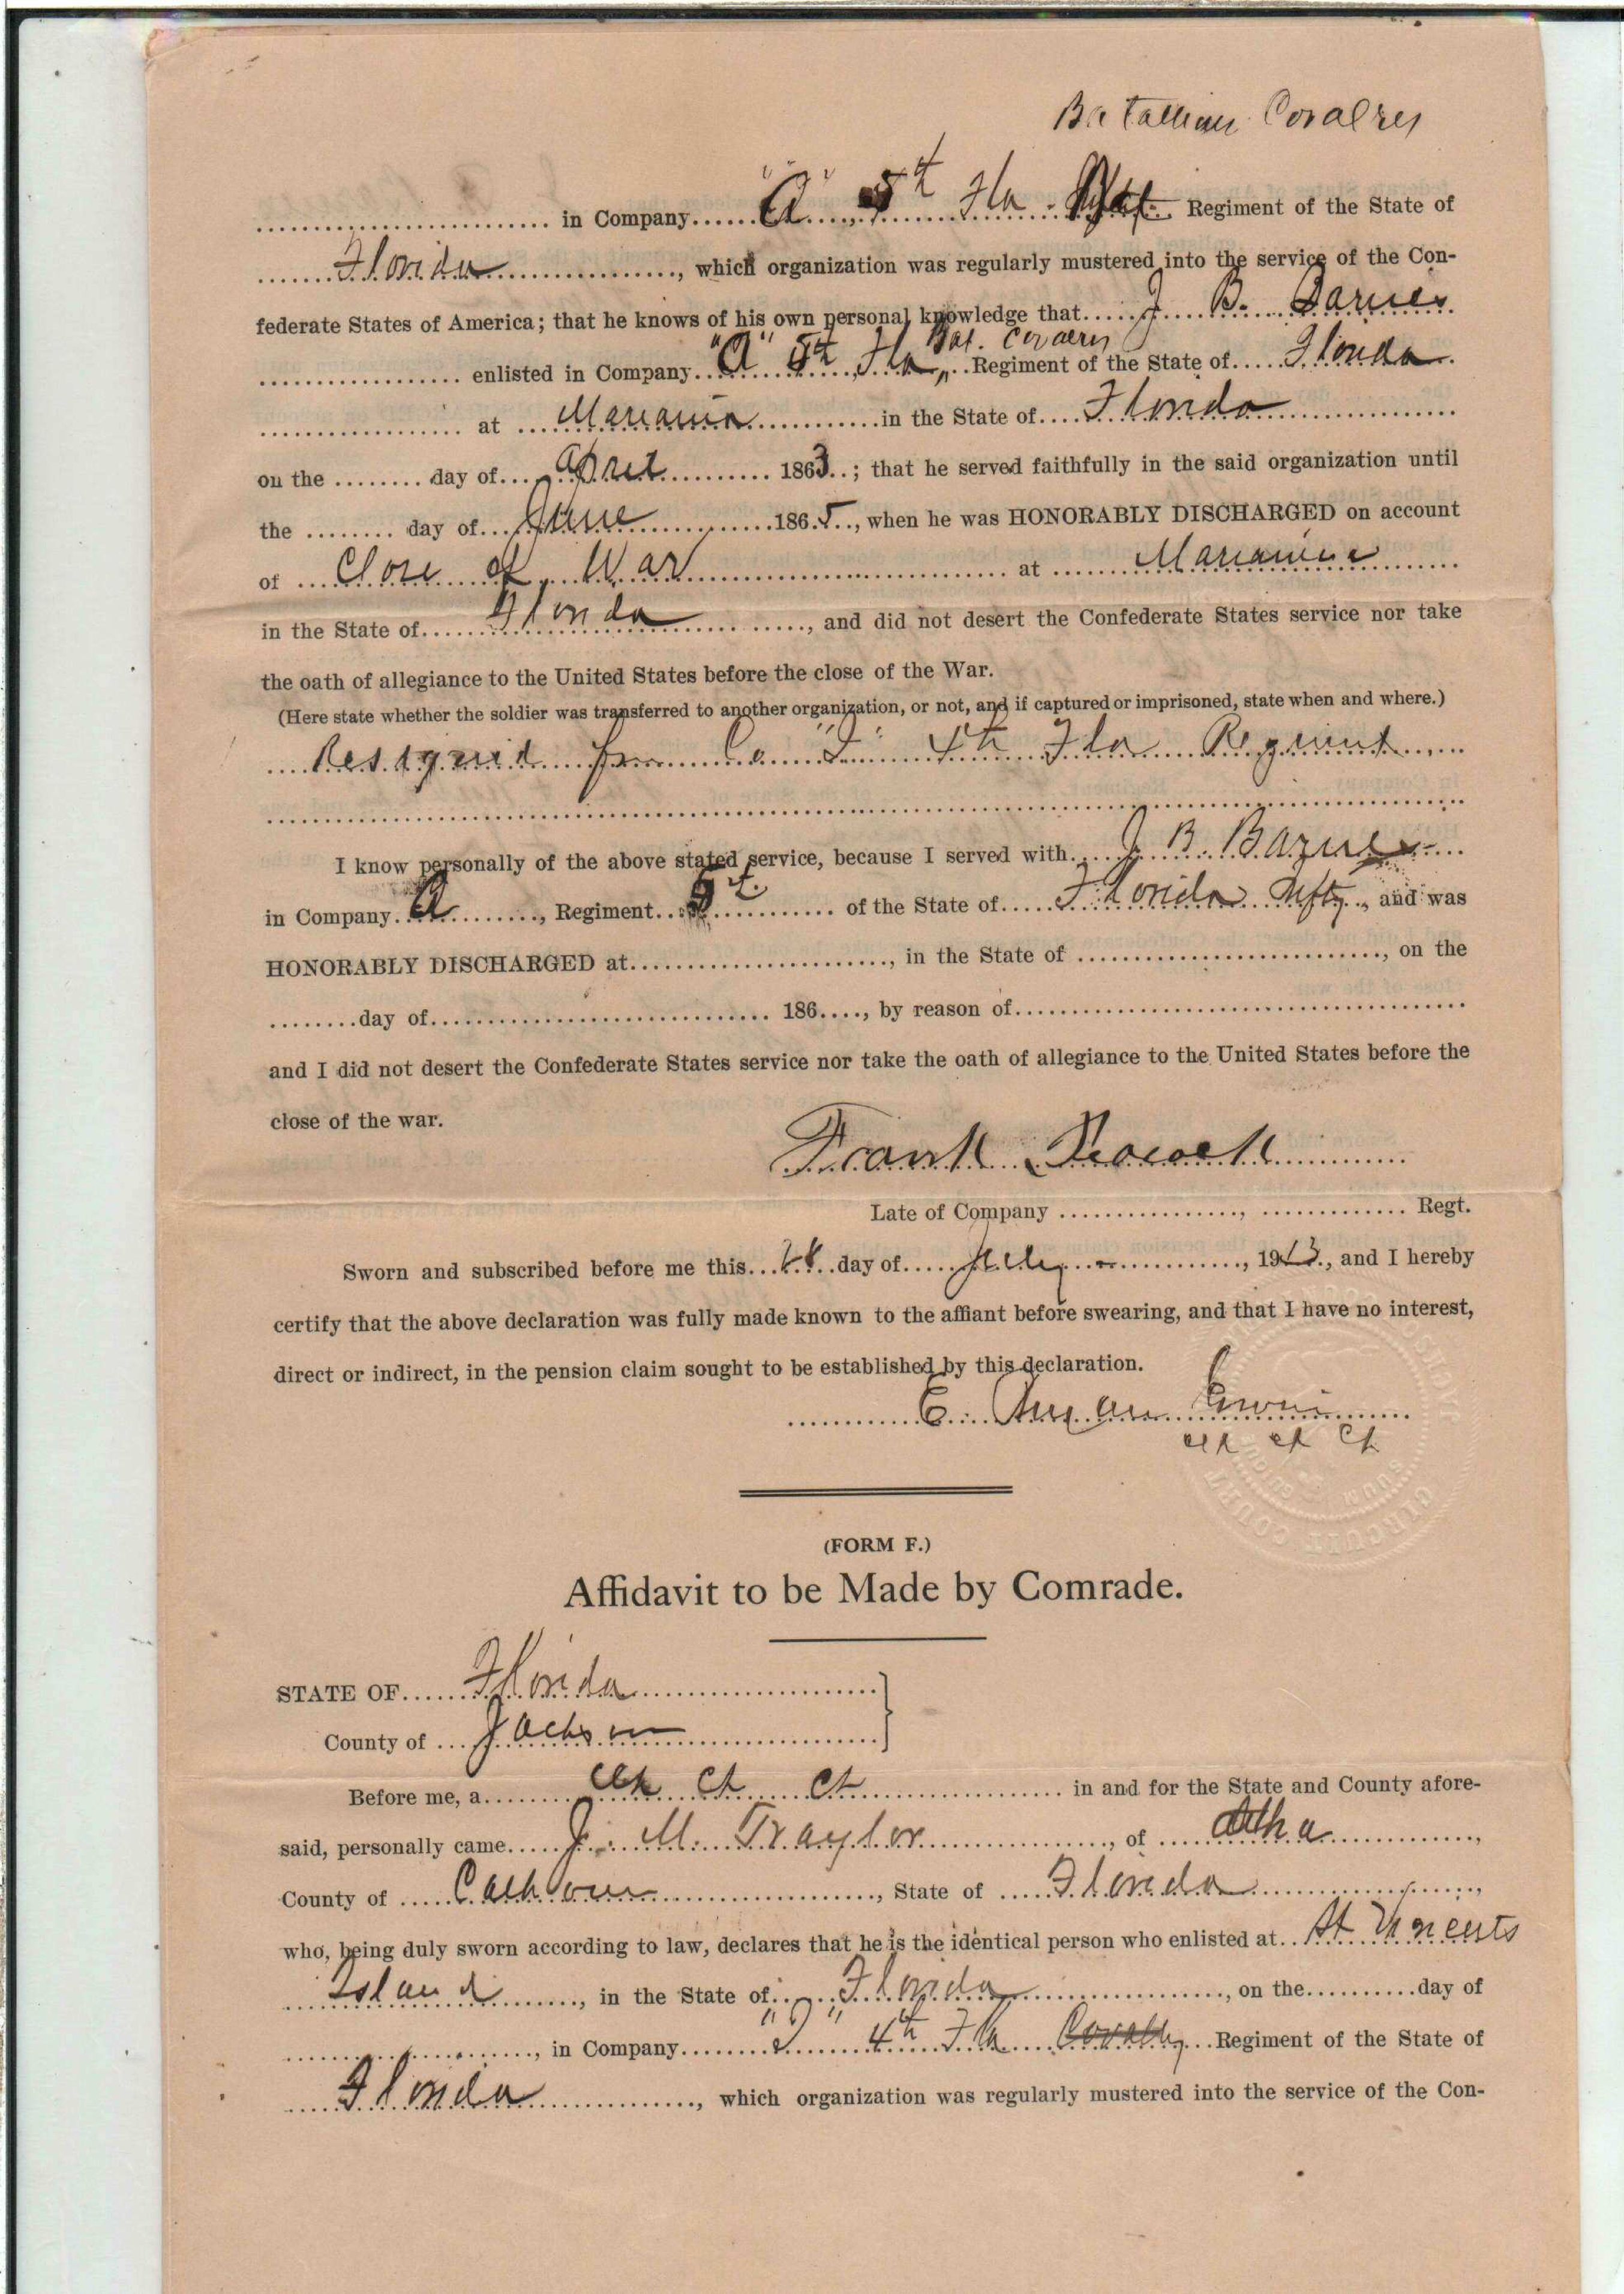 Batallion Covalrey
in Company "A" 5th Fla Regiment of the State of
Florida, which organization was regularly mustered into the service of the Con-
federate States of America; that he knows of his own personal knowledge that J. B. Barnes
Bat. Covalery
enlisted in Company "A" 5th Fla „ Regiment of the State of Florida
at Marianna in the State of Florida
on the ........ day of April 1863; that he served faithfully in the said organization until
the ........ day of June 1865, when he was HONORABLY DISCHARGED on account
of Close of War at Marianna
in the State of Florida, and did not desert the Confederate States service nor take
the oath of allegiance to the United States before the close of the War.
(Here state whether the soldier was transferred to another organization, or not, and if captured or imprisoned, state when and where.)
Resigned from Co "I" 4th Fla Regiment
I know personally of the above stated service, because I served with J. B. Barnes
in Company A, Regiment 5t of the State of Florida, and was
HONORABLY DISCHARGED at ........, in the State of ........, on the
........ day of ........ 186...., by reason of ........
and I did not desert the Confederate States service nor take the oath of allegiance to the United States before the
close of the war.
Frank
Late of Company ........, ........ Regt.
Sworn and subscribed before me this day of July, 1913, and I hereby
certify that the above declaration was fully made known to the affiant before swearing, and that I have no interest,
direct or indirect, in the pension claim sought to be established by this declaration.
C.
clk ct Ct
CIRCUIT COURT
(FORM F.)
Affidavit to be Made by Comrade.
STATE OF Florida
County of Jackson
Before me, a Clk Ct Ct in and for the State and County afore-
said, personally came J. M. Traylor, of Altha,
County of Calhoun, State of Florida,
who, being duly sworn according to law, declares that he is the identical person who enlisted at St Vincents
Island, in the State of Florida, on the ........ day of
........, in Company "I" 4th Fla Covalry Regiment of the State of
Florida, which organization was regularly mustered into the service of the Con-